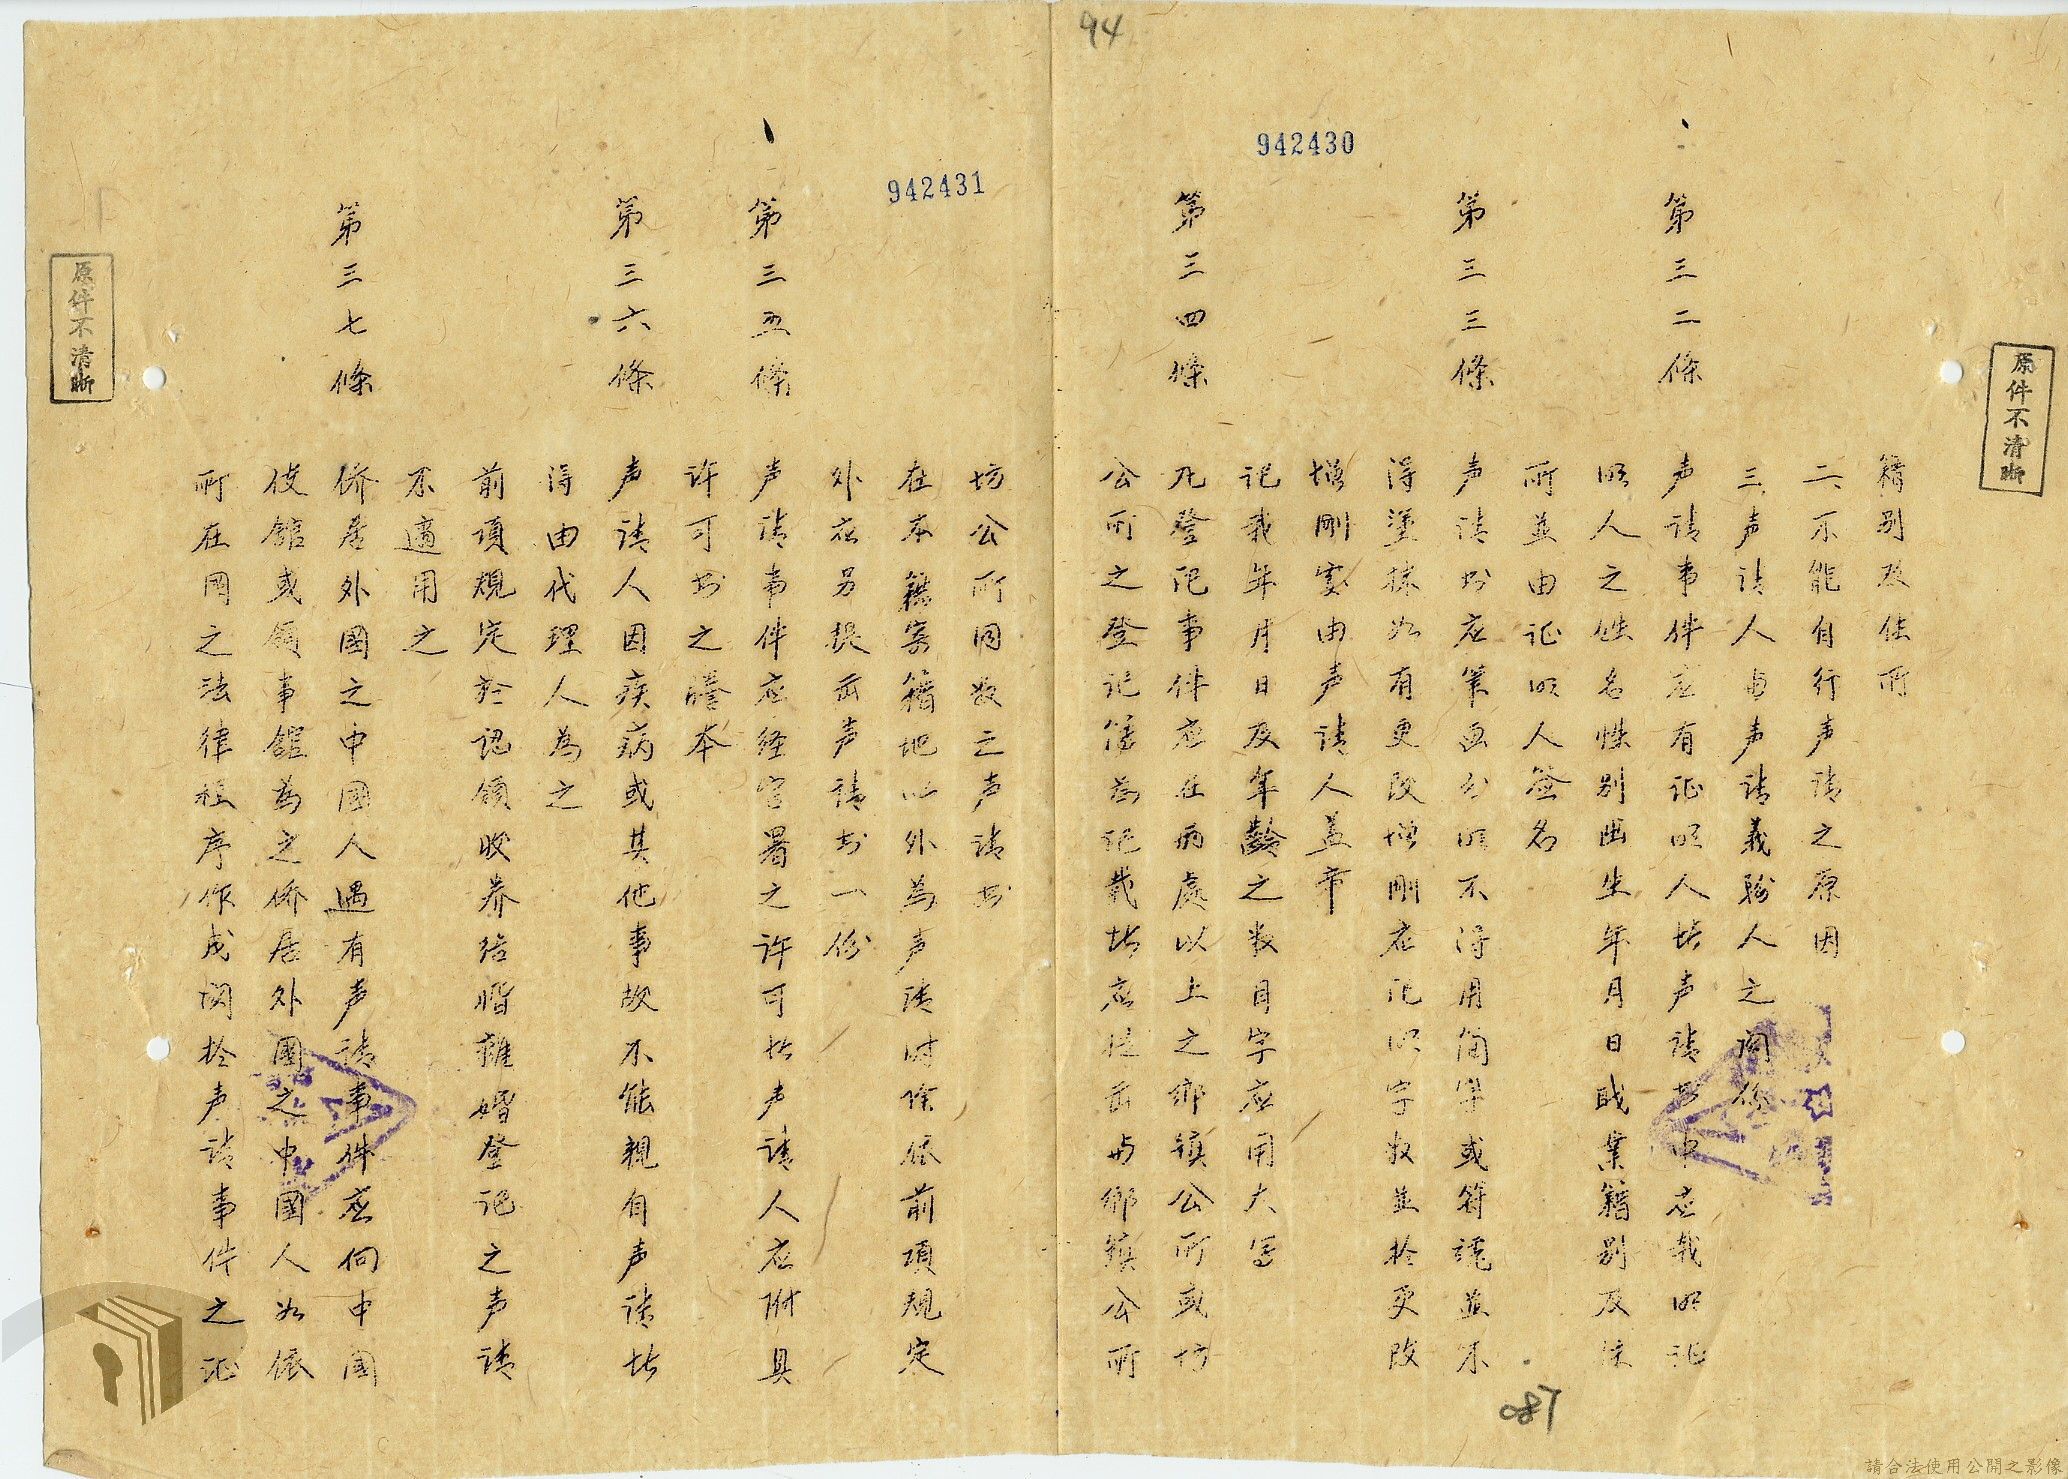 94
942430
籍别及住所
二、不能自行声请之原因
三、声请人与声请義務人之関係
第三二條 声请事件应有证明人者声请书中应載明证
明人之姓名性别出生年月日職業籍别及住
所並由证明人簽名
第三三條 声请书应筆画分明不得用简字或符號並不
得塗抹如有更改增删应记明字数並於更改
增删處由声请人蓋章
记载年月日及年齡之数目字应用大写
第三四條 凡登记事件应在两處以上之鄉鎮公所或坊
公所之登记簿為记载者应提出与鄉鎮公所
087
942431
坊公所同数之声请书
在本籍寄籍地以外為声请时除依前項規定
外应另提出声请书一份
第三五條 声请事件应经官署之许可者声请人应附具
许可书之謄本
第三六條 声请人因疾病或其他事故不能親自声请者
得由代理人為之
前項規定於認領收养结婚離婚登记之声请
不適用之
第三七條 侨居外國之中國人遇有声请事件应向中国
使館或領事館為之侨居外國之中國人如依
所在国之法律程序作成関於声请事件之证
原件不清晰
原件不清晰
請合法使用公開之影像